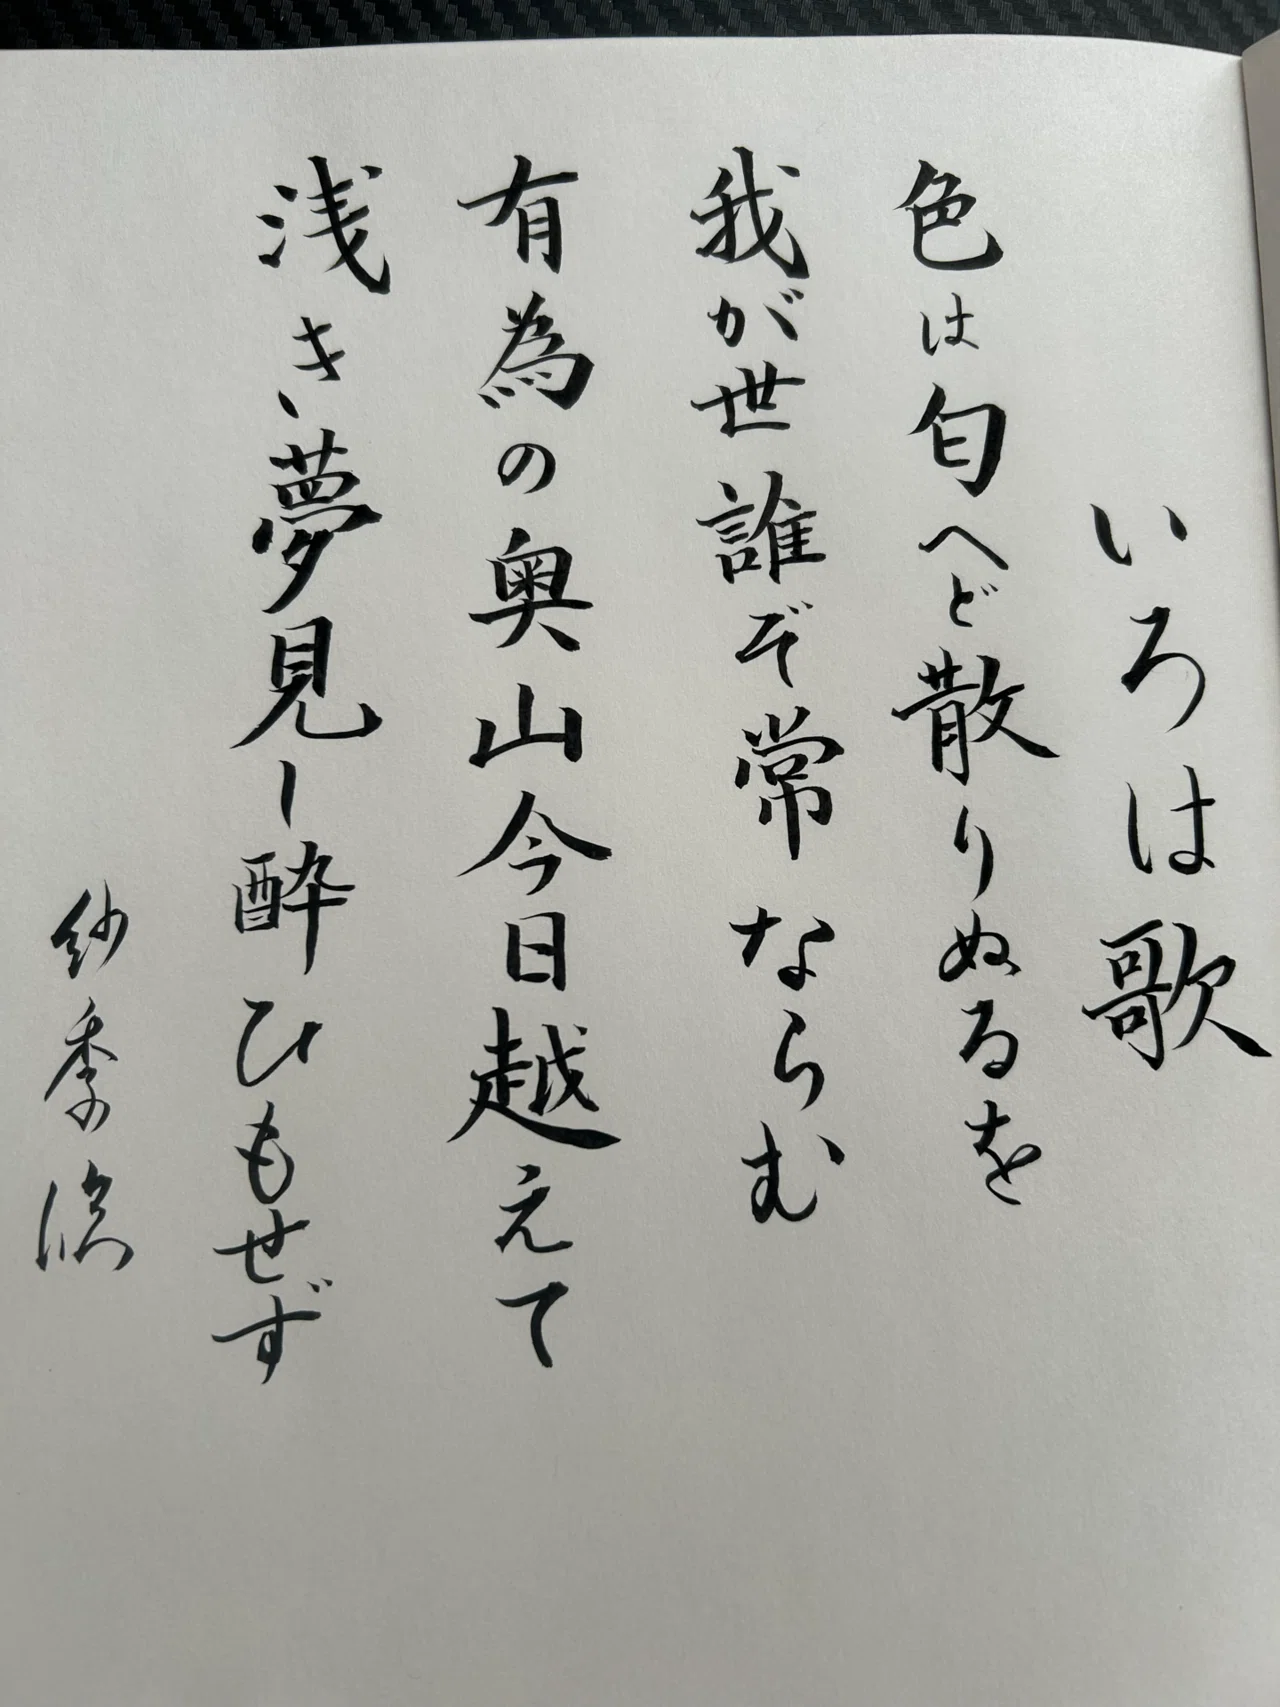 いろは歌
色は匂へど散りぬるを
我が世誰ぞ常ならむ
有為の奥山今日越えて
浅き夢見し酔ひもせず
紗季